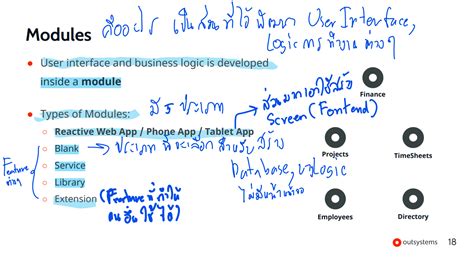 Modules คืออะไร เป็นส่วนที่ใช้พัฒนา User Interface,
Logic การทำงานต่างๆ
• User interface and business logic is developed
inside a module
Finance
• Types of Modules: มี 5 ประเภท
ส่วนมากเอาไว้สร้าง
Screen (Fontend)
◦ Reactive Web App / Phone App / Tablet App
◦ Blank → ประเภทที่จะเลือกสำหรับสร้าง
Database, Logic
ไม่มีหน้าจอ
◦ Service
◦ Library
◦ Extension (Feature ที่ทำให้
คนอื่นใช้ได้)
Feature
ต่างๆ
Projects
TimeSheets
Employees
Directory
outsystems 18